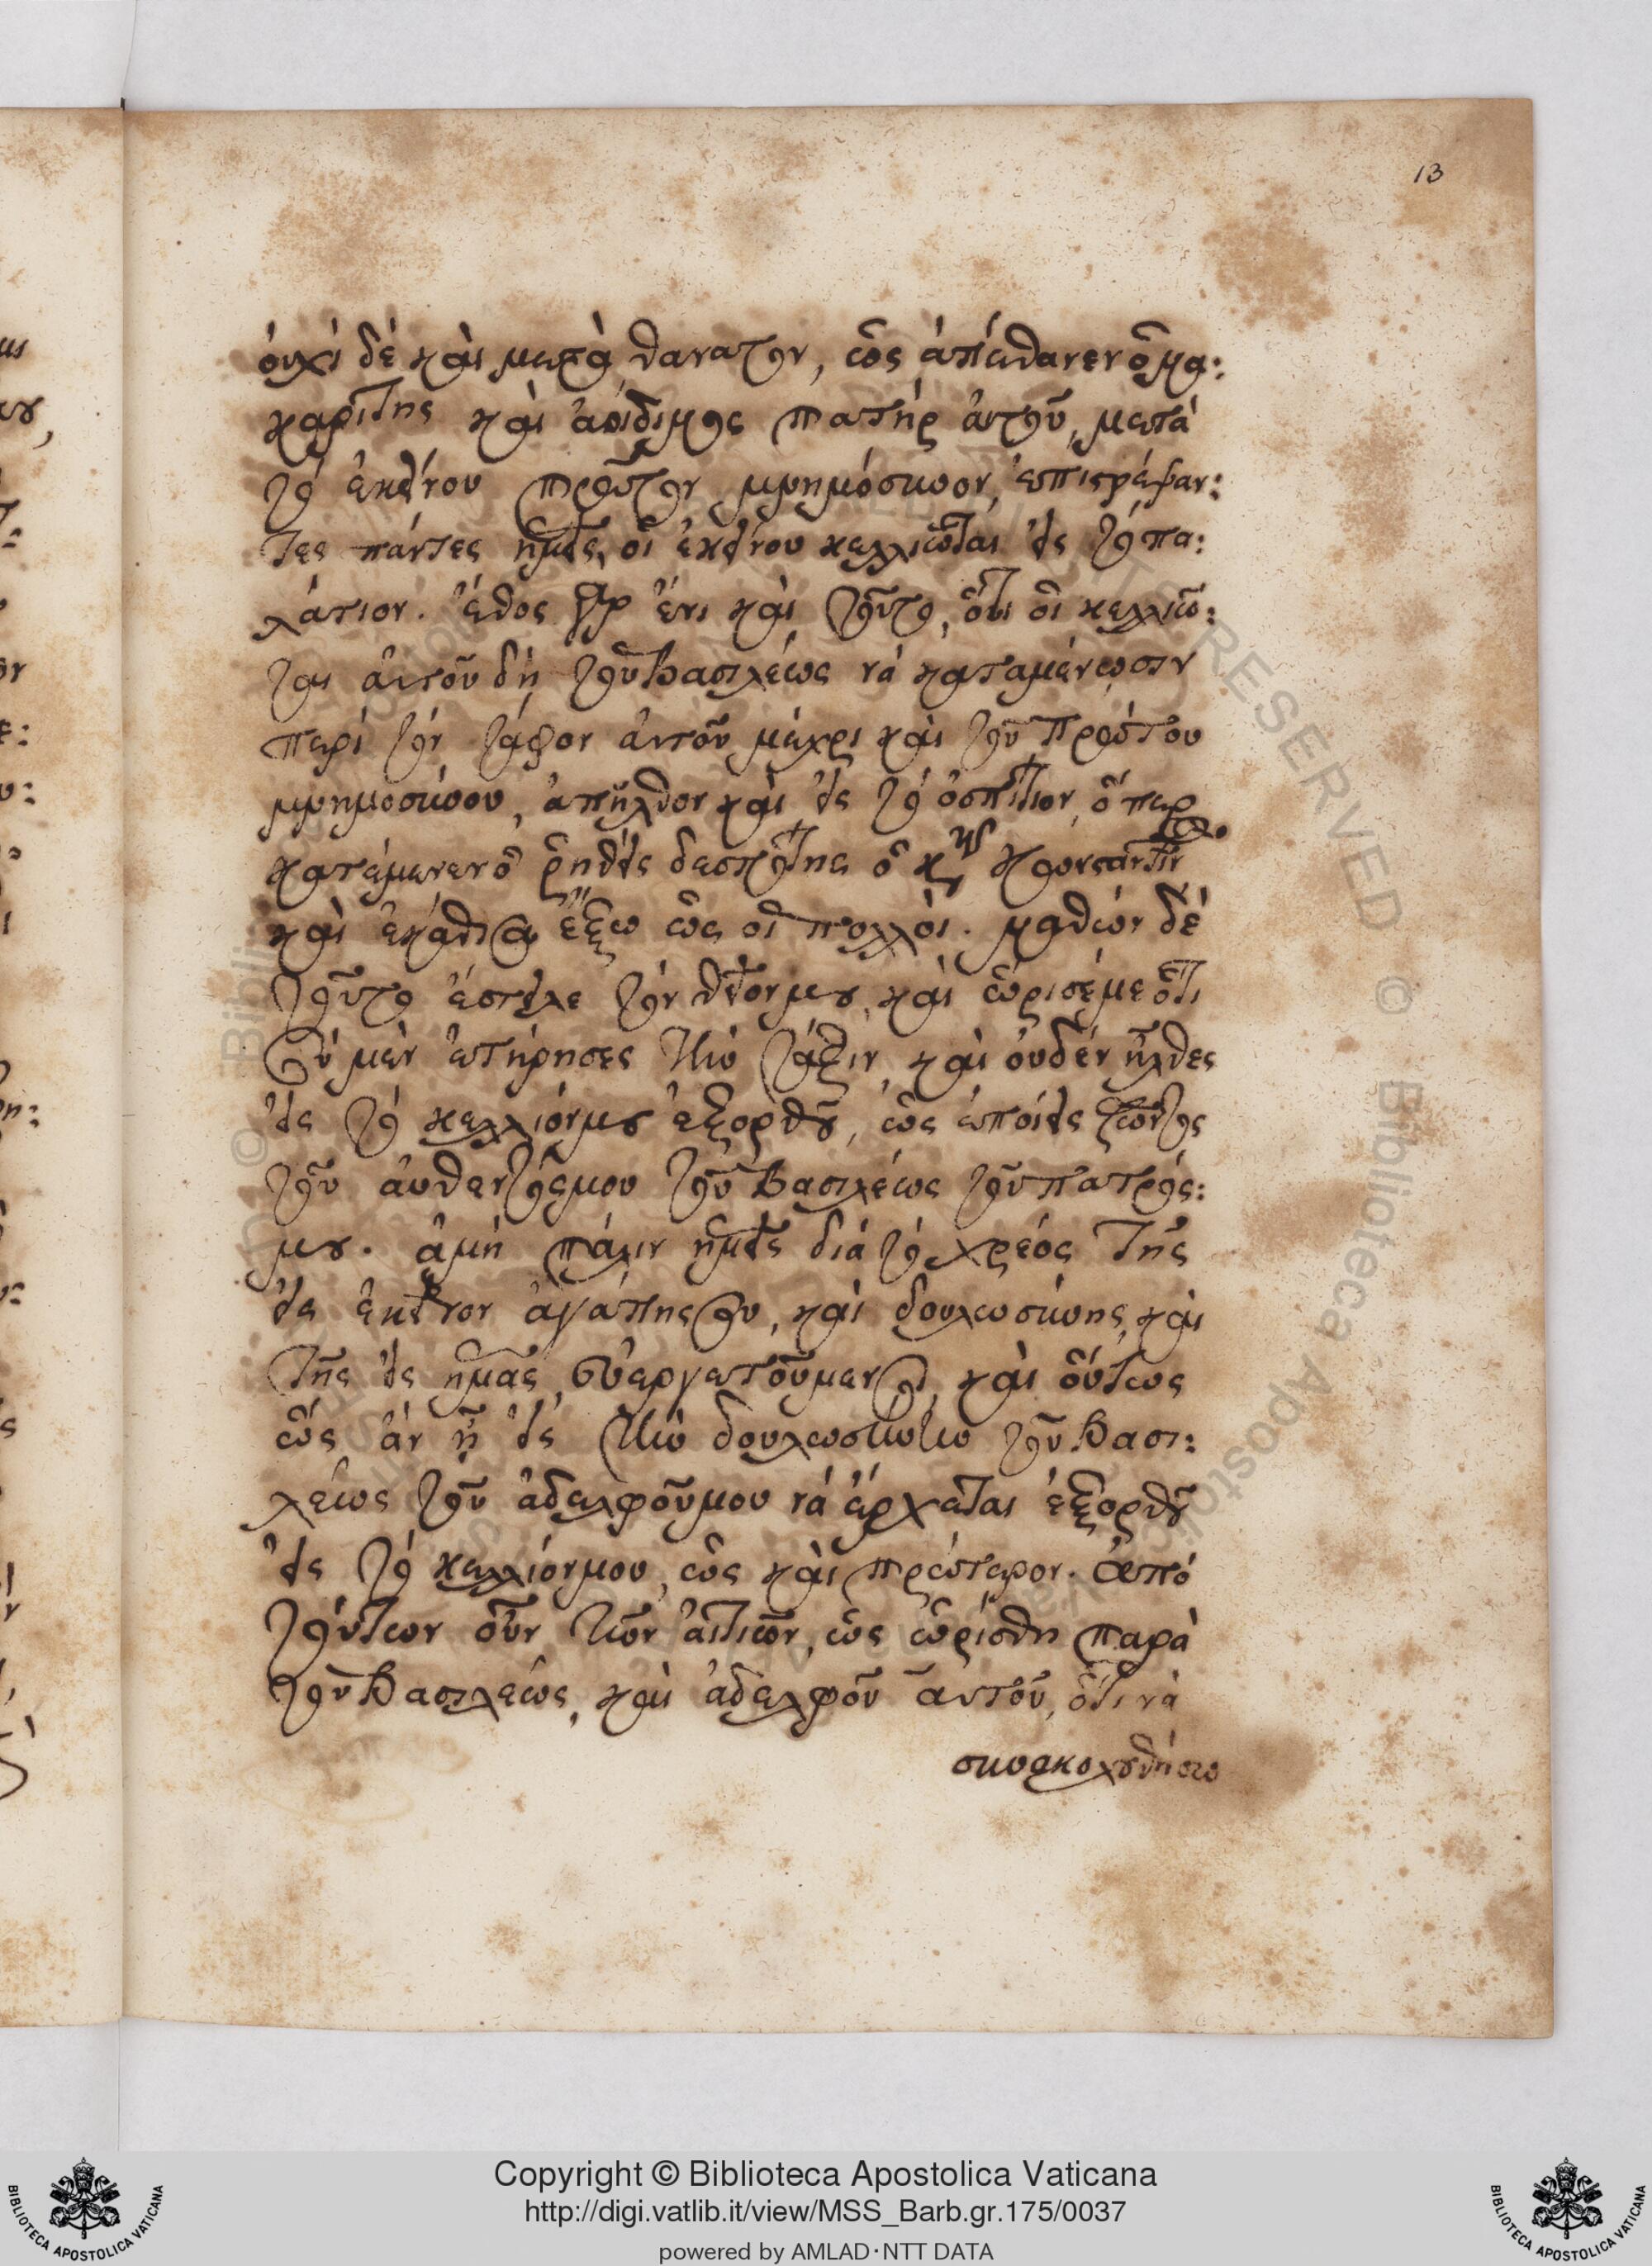 13
ὀυχὶ δὲ καὶ μετὰ θανατον, ὡς ἀπέθανεν ὁ μα:
καρίτης καὶ ἀοίδιμος πατὴρ ἀυτοῦ, μετὰ
τὸ ἐκείνου πρῶτον μνημόσυνον, ἐπιστρέψαν:
τες πάντες ἡμεῖς, οἱ ἐκείνου κελλιῶται εἰς τὸ πα:
λάτιον. ἔθος γὰρ ἔνι καὶ τοῦτο, ὅτι οἱ κελλιῶ:
ται ἀυτοῦ δὴ τοῦ Βασιλέως νὰ καταμένωσιν
περὶ τὸν τάφον ἀυτοῦ μέχρι καὶ τοῦ πρώτου
μνημοσύνου, ἀπῆλθον καὶ εἰς τὸ ὀσπίτιον, ὅπερ
κατέμενεν ὁ ῥηθεὶς δεσπότης ὁ κὺρ κωνσταντῖν
καὶ ἐκάθισα ἔξω ὡς οἱ πολλοὶ. μαθὼν δὲ
τοῦτο ἔστειλε τὸν θεῖον μου, καὶ ὥρισέ με ὅτι
σὺ μὲν ἐτήρησες τὴν τάξιν, καὶ ὀυδὲν ἦλθες
εἰς τὸ κελλιόν μου ἐξορθοῦ, ὡς ἐποίεις ζῶντος
τοῦ ἀυθέντος μου τοῦ Βασιλέως τοῦ πατρός:
μου. ἀμὴ πάλιν ἡμεῖς διὰ τὸ χρέος τῆς
εἰς ἐκεῖνον ἀγάπης σου, καὶ δουλωσύνης, καὶ
τῆς εἰς ἡμᾶς, ἐυεργετοῦμεν σοι, καὶ ὅυτως
ὡς ἀν ᾖ εἰς τὴν δουλωσύνην τοῦ Βασι:
λέως τοῦ ἀδελφοῦ μου νὰ ἔρχεται ἐξορθοῦ
εἰς τὸ κελλιόν μου, ὡς καὶ πρώτερον. ἀπὸ
τούτων οὖν τῶν ἀιτιῶν, ὡς ὡρίσθη παρὰ
τοῦ Βασιλέως, καὶ ἀδελφοῦ ἀυτοῦ, ὅτι νὰ
συνακολουθήσω
Copyright © Biblioteca Apostolica Vaticana
http://digi.vatlib.it/view/MSS_Barb.gr.175/0037
powered by AMLAD·NTT DATA
BIBLIOTECA APOSTOLICA VATICANA
BIBLIOTECA APOSTOLICA VATICANA